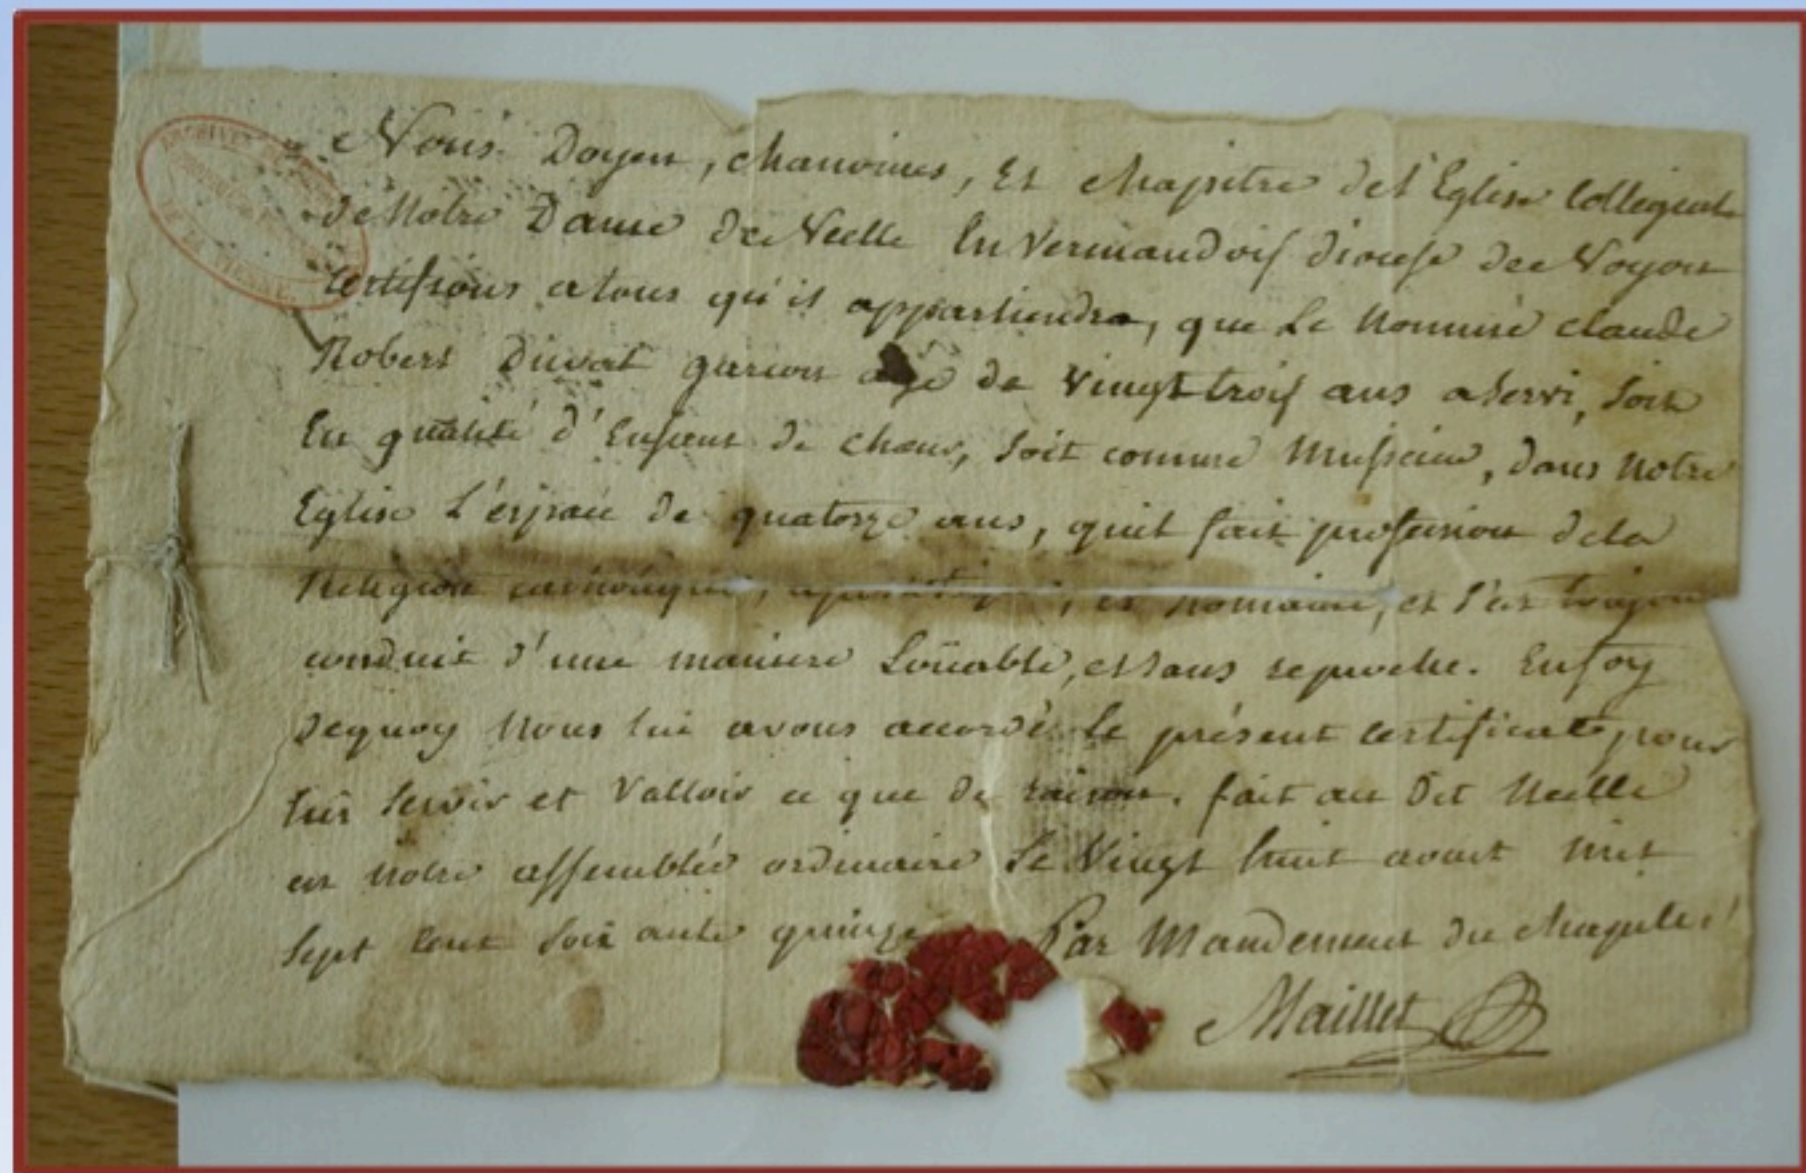 ARCHIVES
VIENNE
Nous Doyen, chanoines, Et chapitre de l'Eglise Collegiale
de Notre Dame de Neelle En Vermandois diocese de Noyon
certifions a tous qu'il appartiendra, que Le nommé claude
Robert Duval garcon agé de Vingt trois ans a servi, soit
En qualité d'Enfant de choeur, soit comme Musicien, dans notre
Eglise L'espace de quatorze ans, quil fait profession de la
Religion catholique, apostolique, et Romaine, et s'est toujours
conduit d'une maniere Loüable, et sans reproche. En foy
dequoy nous lui avons accordé le présent certificat, pour
lui servir et valloir ce que de raison. fait au dit Neelle
en notre assemblée ordinaire le Vingt huit aoust mil
sept cent soixante quinze Par Mandement du chapitre
Maillet